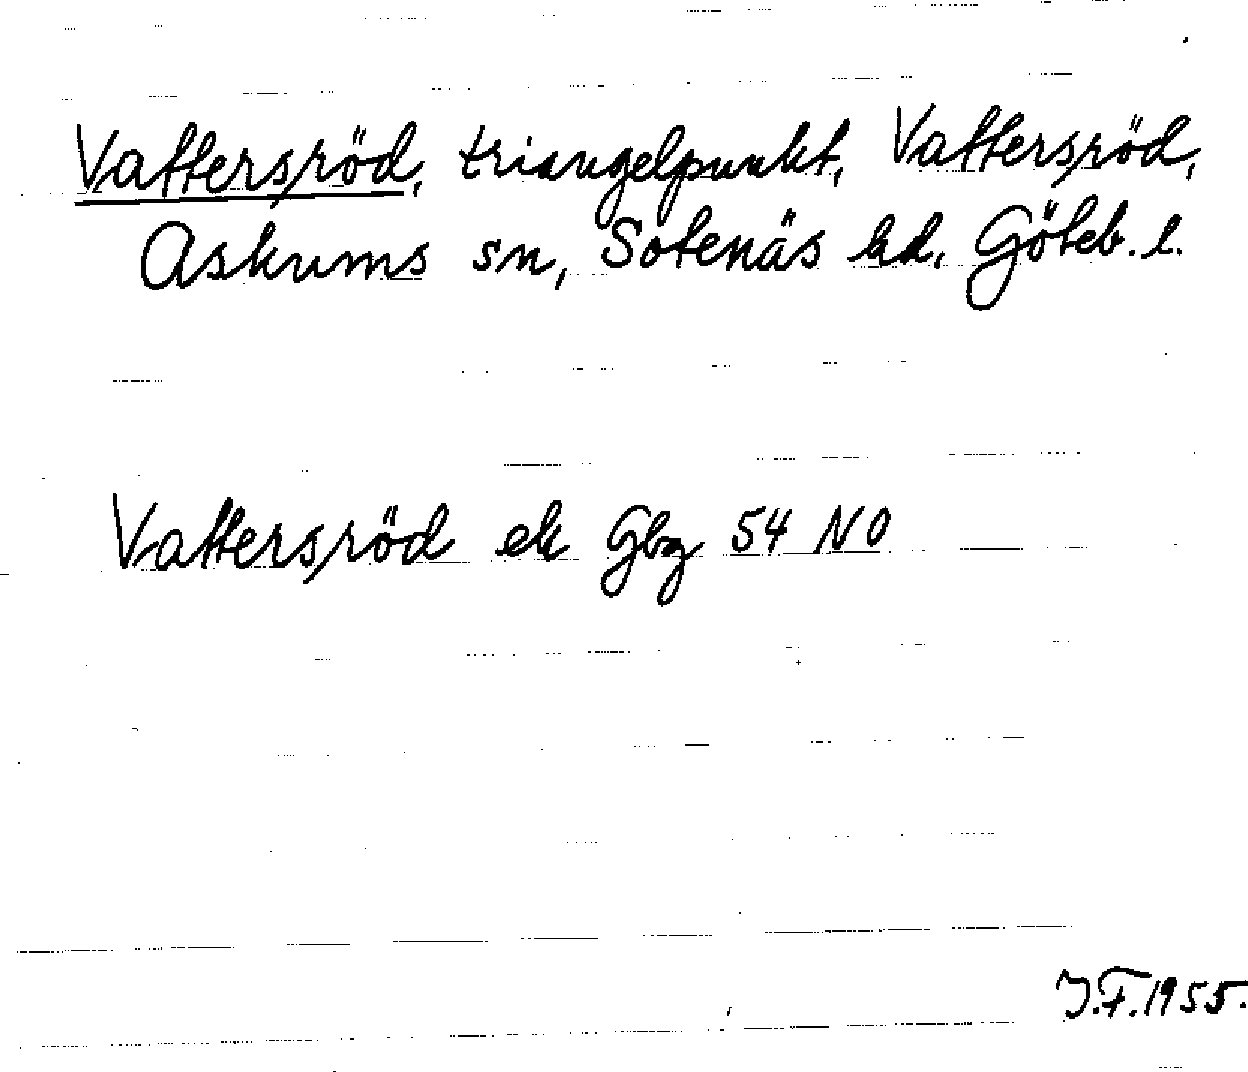 Vattersröd, triangelpunkt, Vattersröd,
Askums sn, Sotenäs hd, Göteb. l.
Vattersröd ek Gbg 54 NO
J.F. 1955.